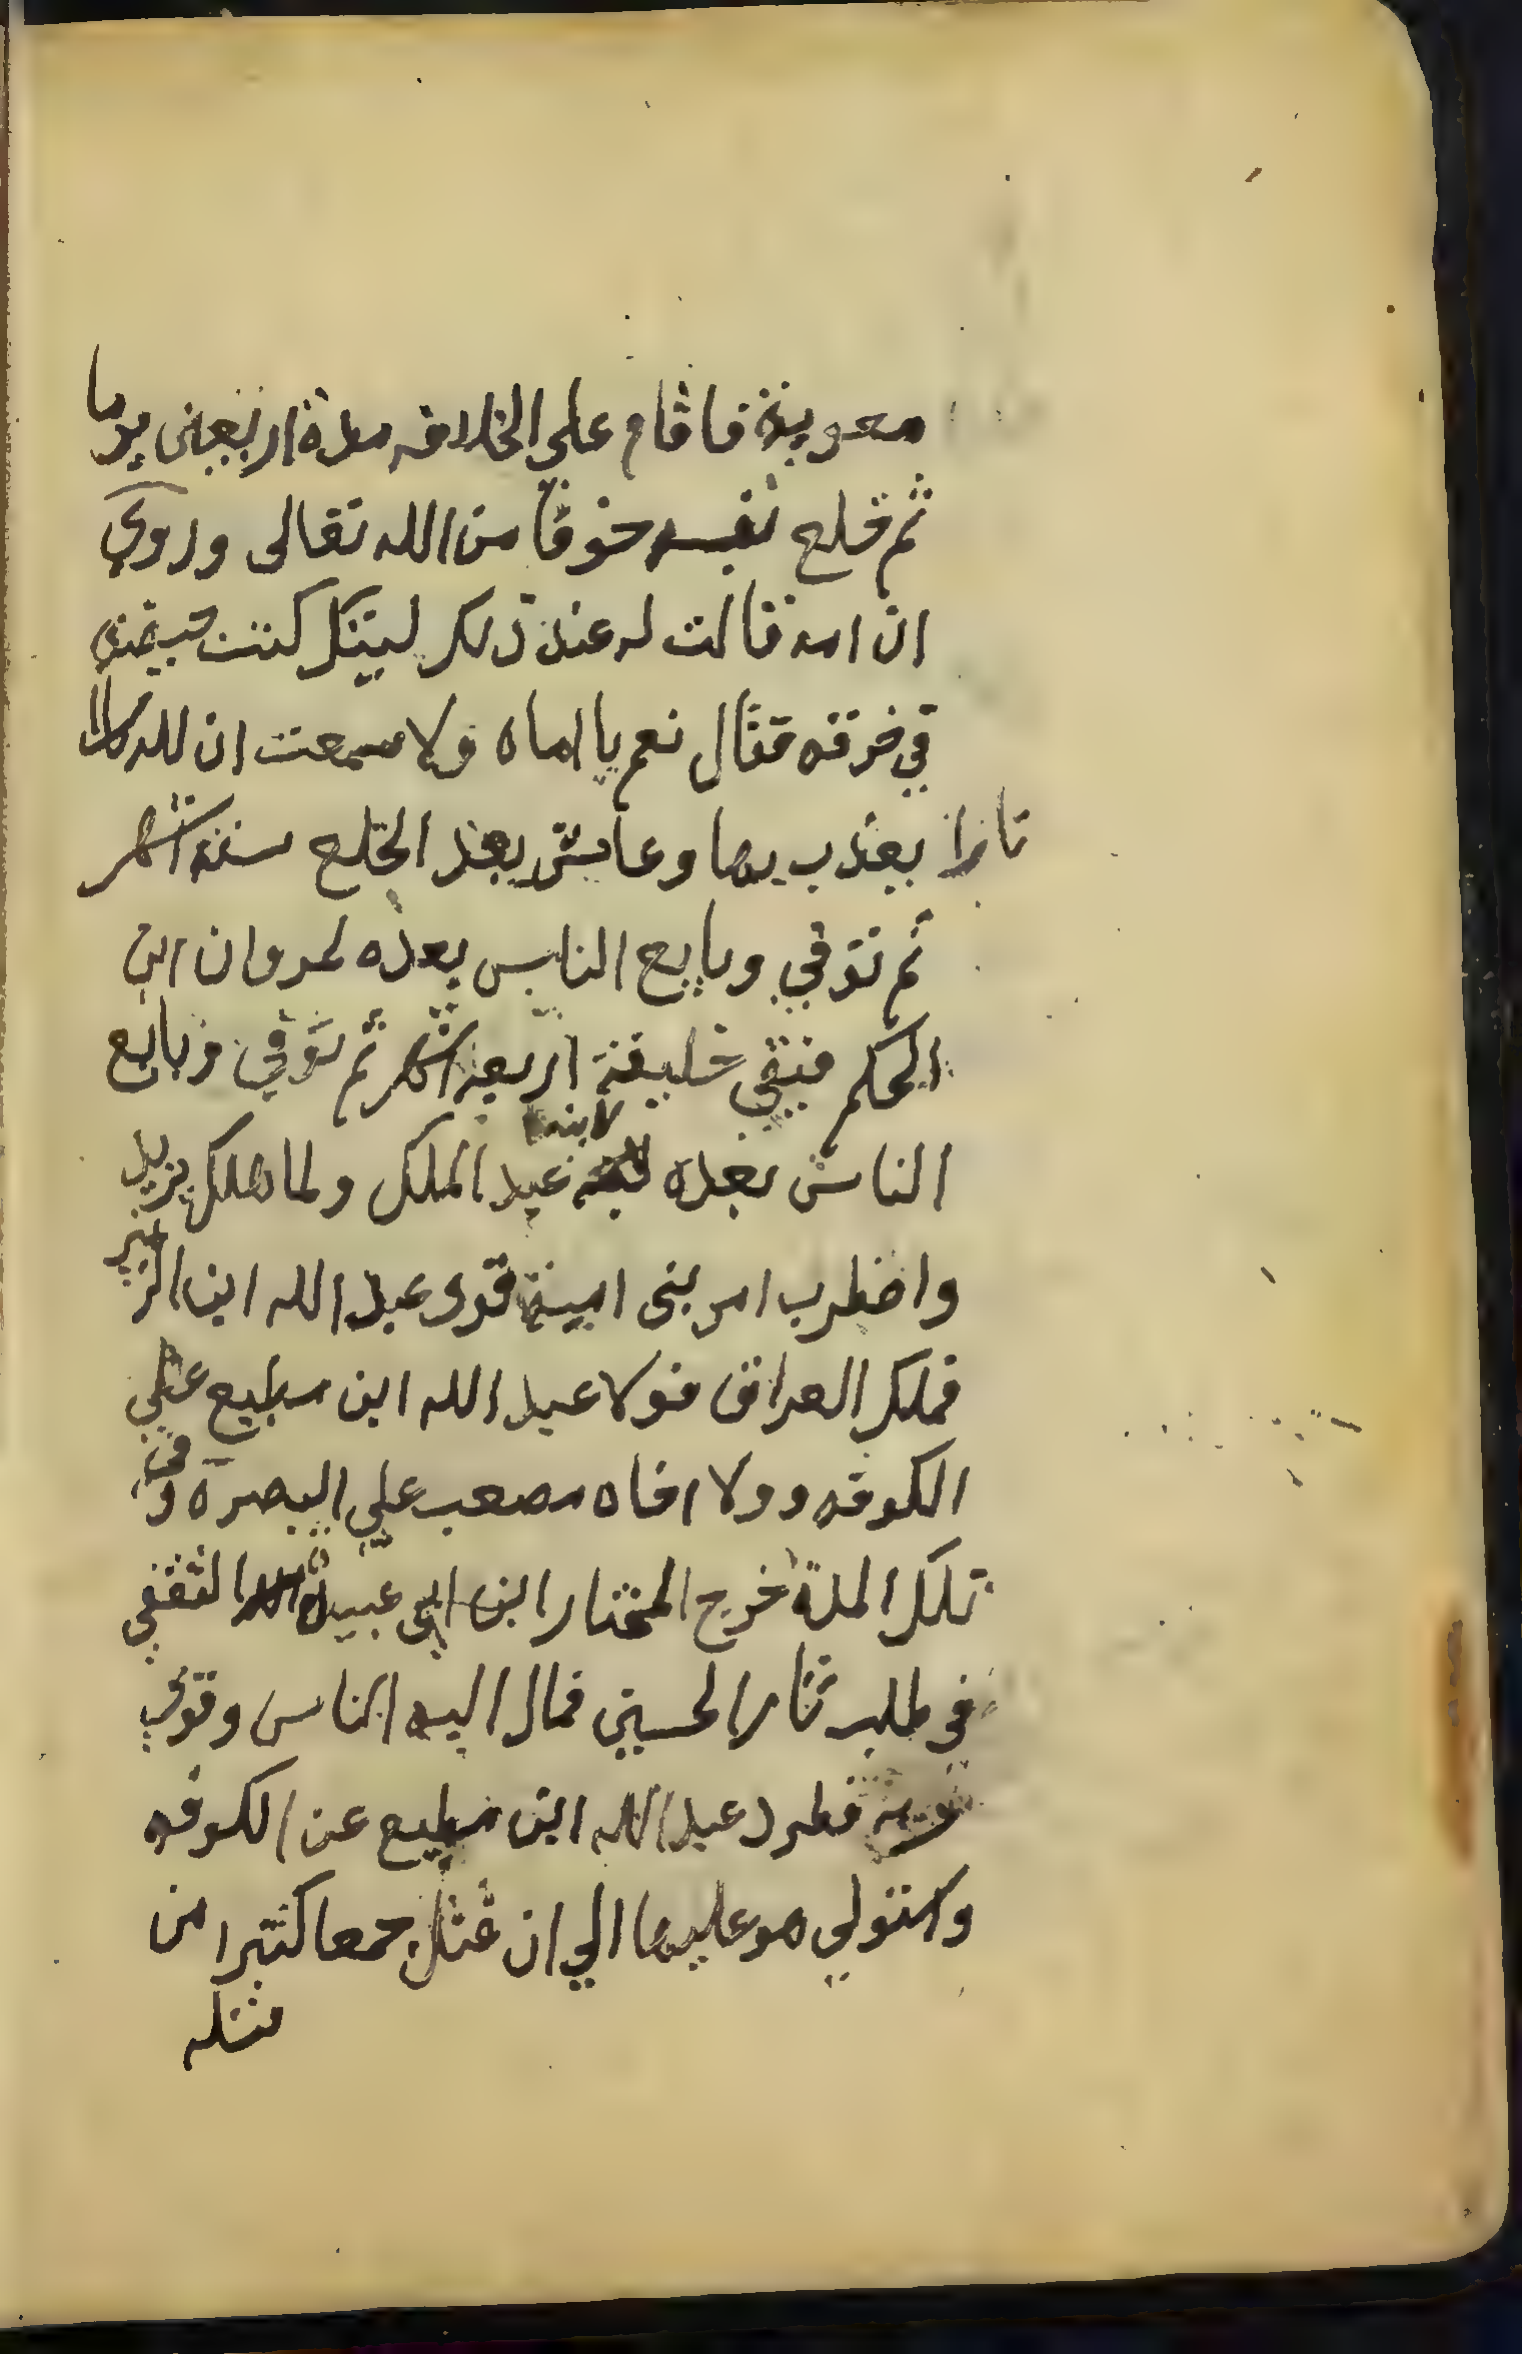 معوية فاقام علي الخلافه مدة اربعين يوما
ثم خلع نفسه خوفا من الله تعالى وروي
ان امه قالت له عند ذلك ليتك كنت حيضة
في خرقه فقال نعم يا اماه ولا سمعت ان لله
نارا يعذب بها وعاش بعد الخلع ستة اشهر
ثم توفي وبايع الناس بعده لمروان ابن
الحكم فبقي خليفة اربعة اشهر ثم توفي وبايع
الناس بعده لابنه عبد الملك ولما هلك يزيد
واضطرب امر بني امية قوى عبد الله ابن الزبير
فملك العراق فولا عبد الله ابن مطيع علي
الكوفه وولا اخاه مصعب علي البصرة وفي
تلك المدة خرج المختار ابن ابي عبيدة الثقفي
في طلب ثار الحسين فمال اليه الناس وقوي
فطرد عبد الله ابن مطيع عن الكوفه
واستولي هو عليها الي ان قتل جمعا كثيرا من
قتله